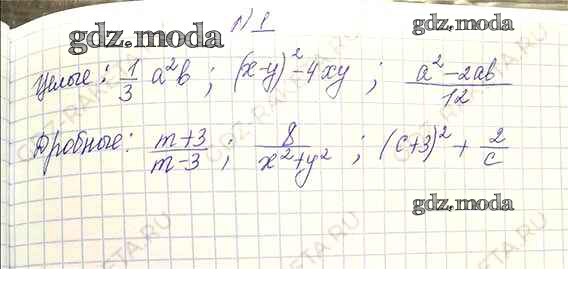 №1
gdz.moda
Целые: 1/3 a²b ; (x-y)²-4xy ; a²-2ab/12
Дробные: m+3/m-3 ; 8/x²+y² ; (c+3)² + 2/c
gdz.moda